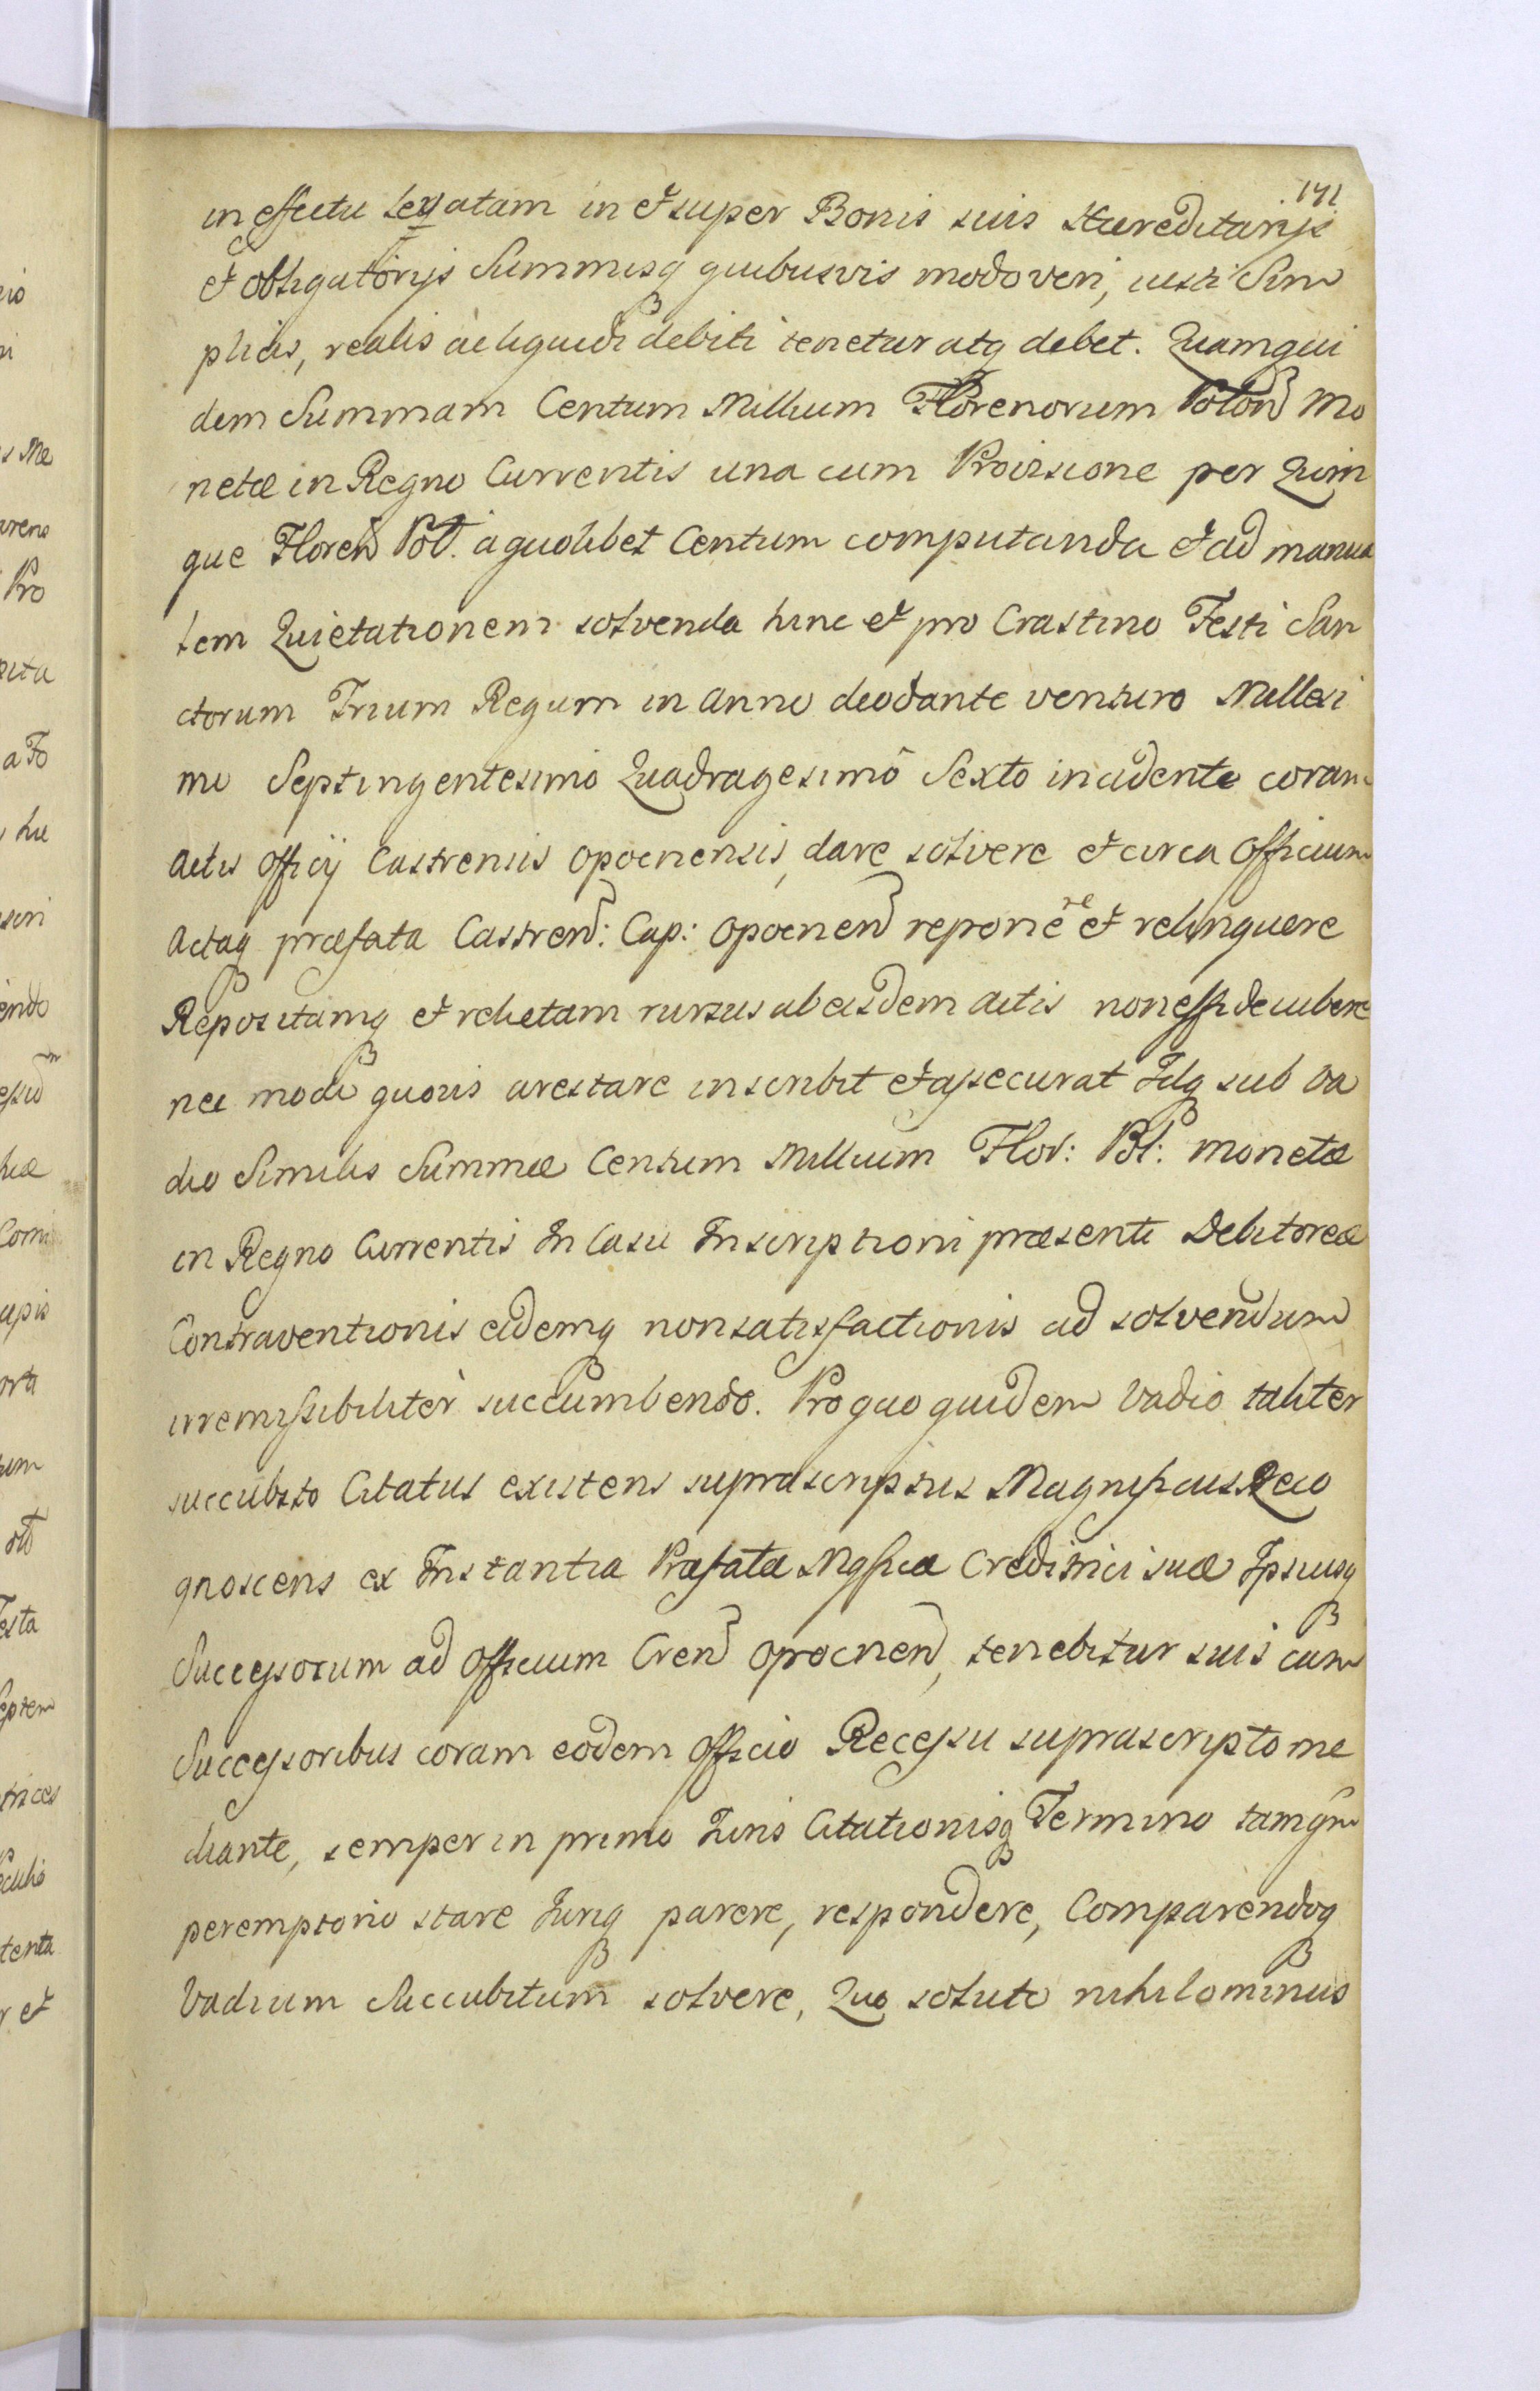 171
in effectu levatam in et super Bonis suis Haereditarijs
et obligatorijs Summisq quibusvis modo veri, iusti Sim
plicis, realis ac liquidi debiti tenetur atq debet. Quamqui
dem Summam Centum Millium Florenorum Polon Mo
netae in Regno Currentis una cum Provisione per Quin
que Floren Pol. a quolibet Centum computanda et ad manua
lem Quietationem solvenda hinc et pro Crastino Festi San
ctorum Trium Regum in Anno deodante venturo Millesi
mo Septingentesimo Quadragesimo Sexto incidente coram
Actis Officij Castrensis Opocnensis, dare solvere et circa Officium
Actaq praefata Castren: Cap: Opocnen reponere et relinquere
Repositamq et relictam rursus ab eisdem Actis non
nec modi quovis arestare inscribit et assecurat Idq sub Va
dio Similis Summae Centum Millium Flor: Pol: Monetae
in Regno Currentis In Casu Inscriptioni praesenti Debitoreae
Contraventionis eidemq non satisfactionis ad solvendum
irremissibiliter succumbendo. Pro quo quidem Vadio taliter
succubito Citatus existens suprascriptus Magnificus Reco
gnoscens ex Instantia Praefatae Mgficae Creditrici suae Ipsiusq
Successorum ad Officium Cren Opocnen, tenebitur suis cum
Successoribus coram eodem Officio Recessu suprascripto me
diante, semper in primo Juris Citationisq Termino tamqm
peremptorio stare Juriq parere, respondere, Comparendoq
Vadium Succubitum solvere, Quo soluto nihilominus